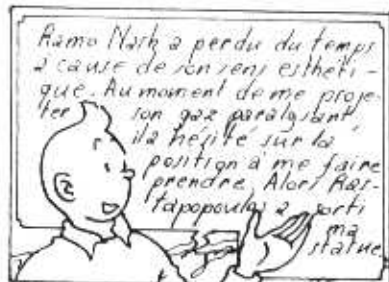 Ramo Nash a perdu du temps
a cause de son sens esthéti-
que. Au moment de me proje-
ter son gaz paralysant
il a hésité sur la
position à me faire
prendre. Alors Ras-
tapopoulos a sorti
ma
statue